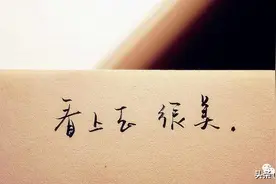 看上去很美。
头条